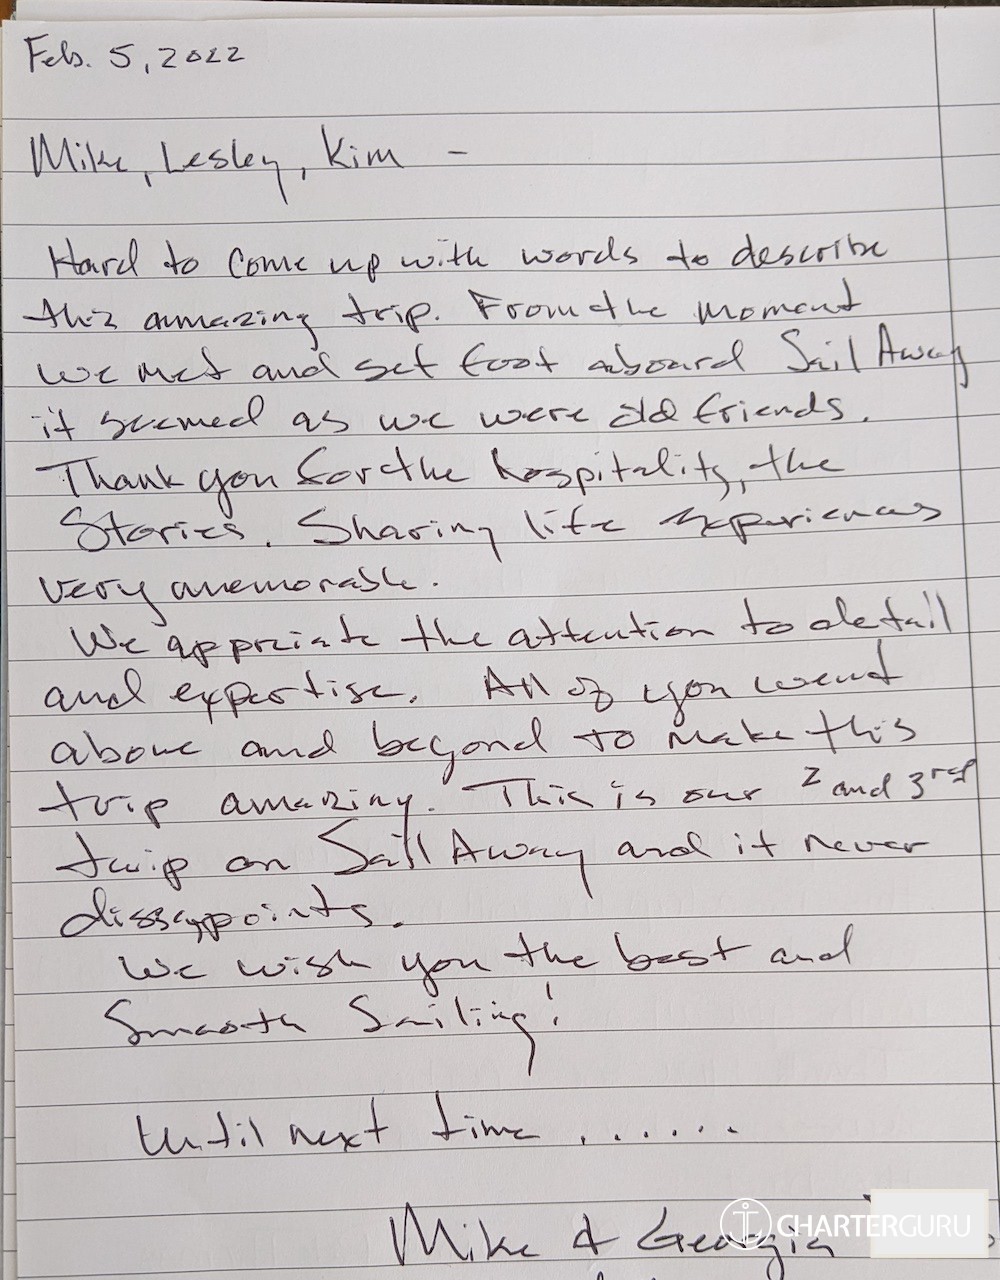 Feb. 5, 2022
Mike, Lesley, Kim -
Hard to come up with words to describe
this amazing trip. From the moment
we met and set foot aboard Sail Away
it seemed as we were old friends.
Thank you for the hospitality, the
Stories. Sharing life experiences
very memorable.
We appriate the attention to detail
and expertise. All of you went
above and beyond to make this
trip amazing. This is our 2 and 3rd
trip on Sail Away and it never
dissappoints.
We wish you the best and
Smooth Sailing!
Until next time .......
Mike & Georgia
CHARTERGURU